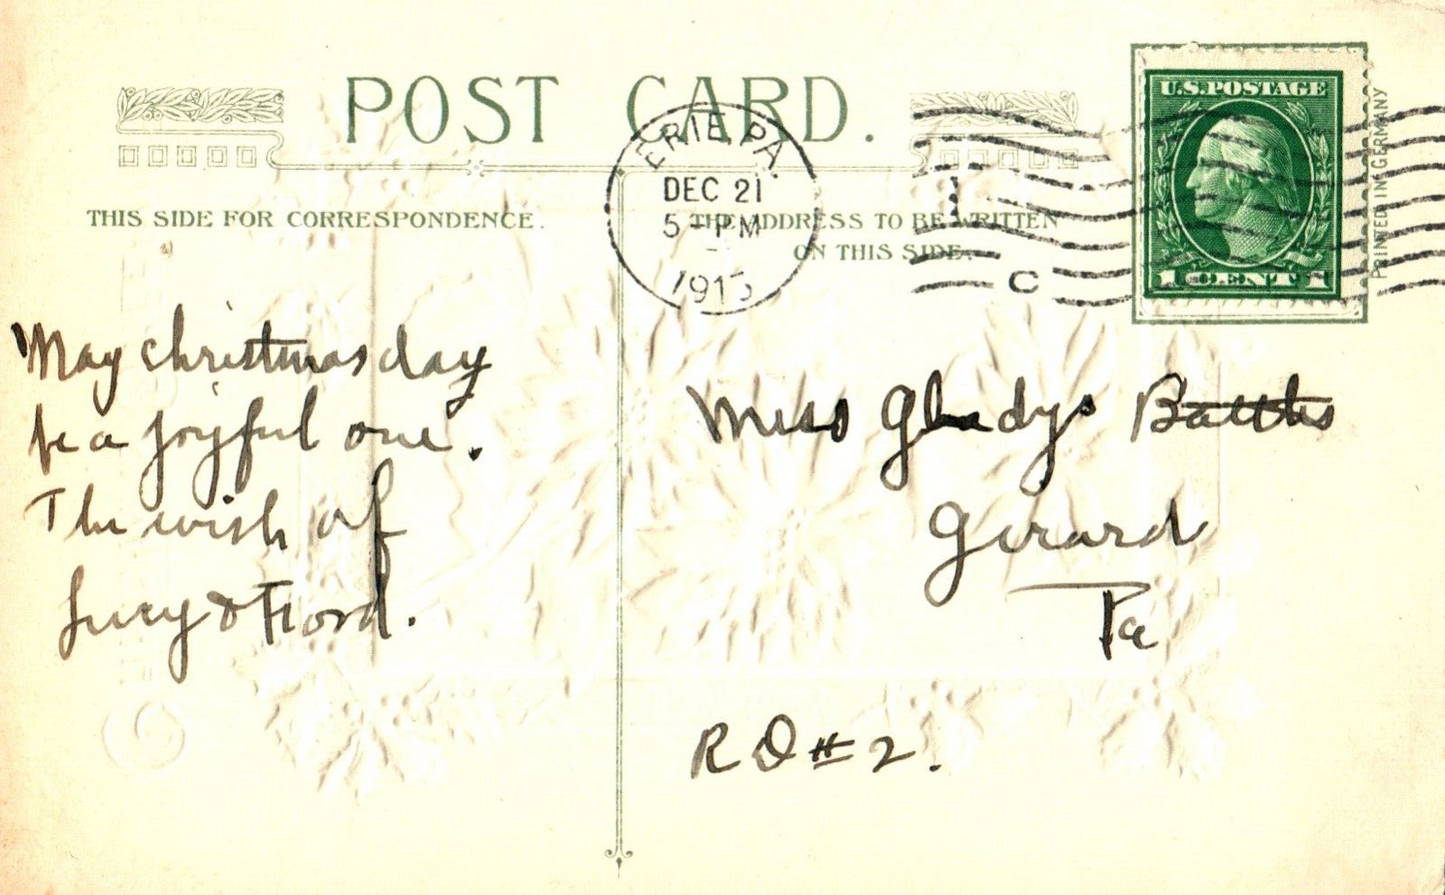 POST CARD.
THIS SIDE FOR CORRESPONDENCE.
THE ADDRESS TO BE WRITTEN
ON THIS SIDE.
ERIE, PA.
DEC 21
5-PM
1913
C
U.S.POSTAGE
1 CENT 1
PRINTED IN GERMANY
May christmas day
be a joyful one.
The wish of
Lucy & Ford.
Miss Gladys Battles
Girard
Pa
R D # 2.